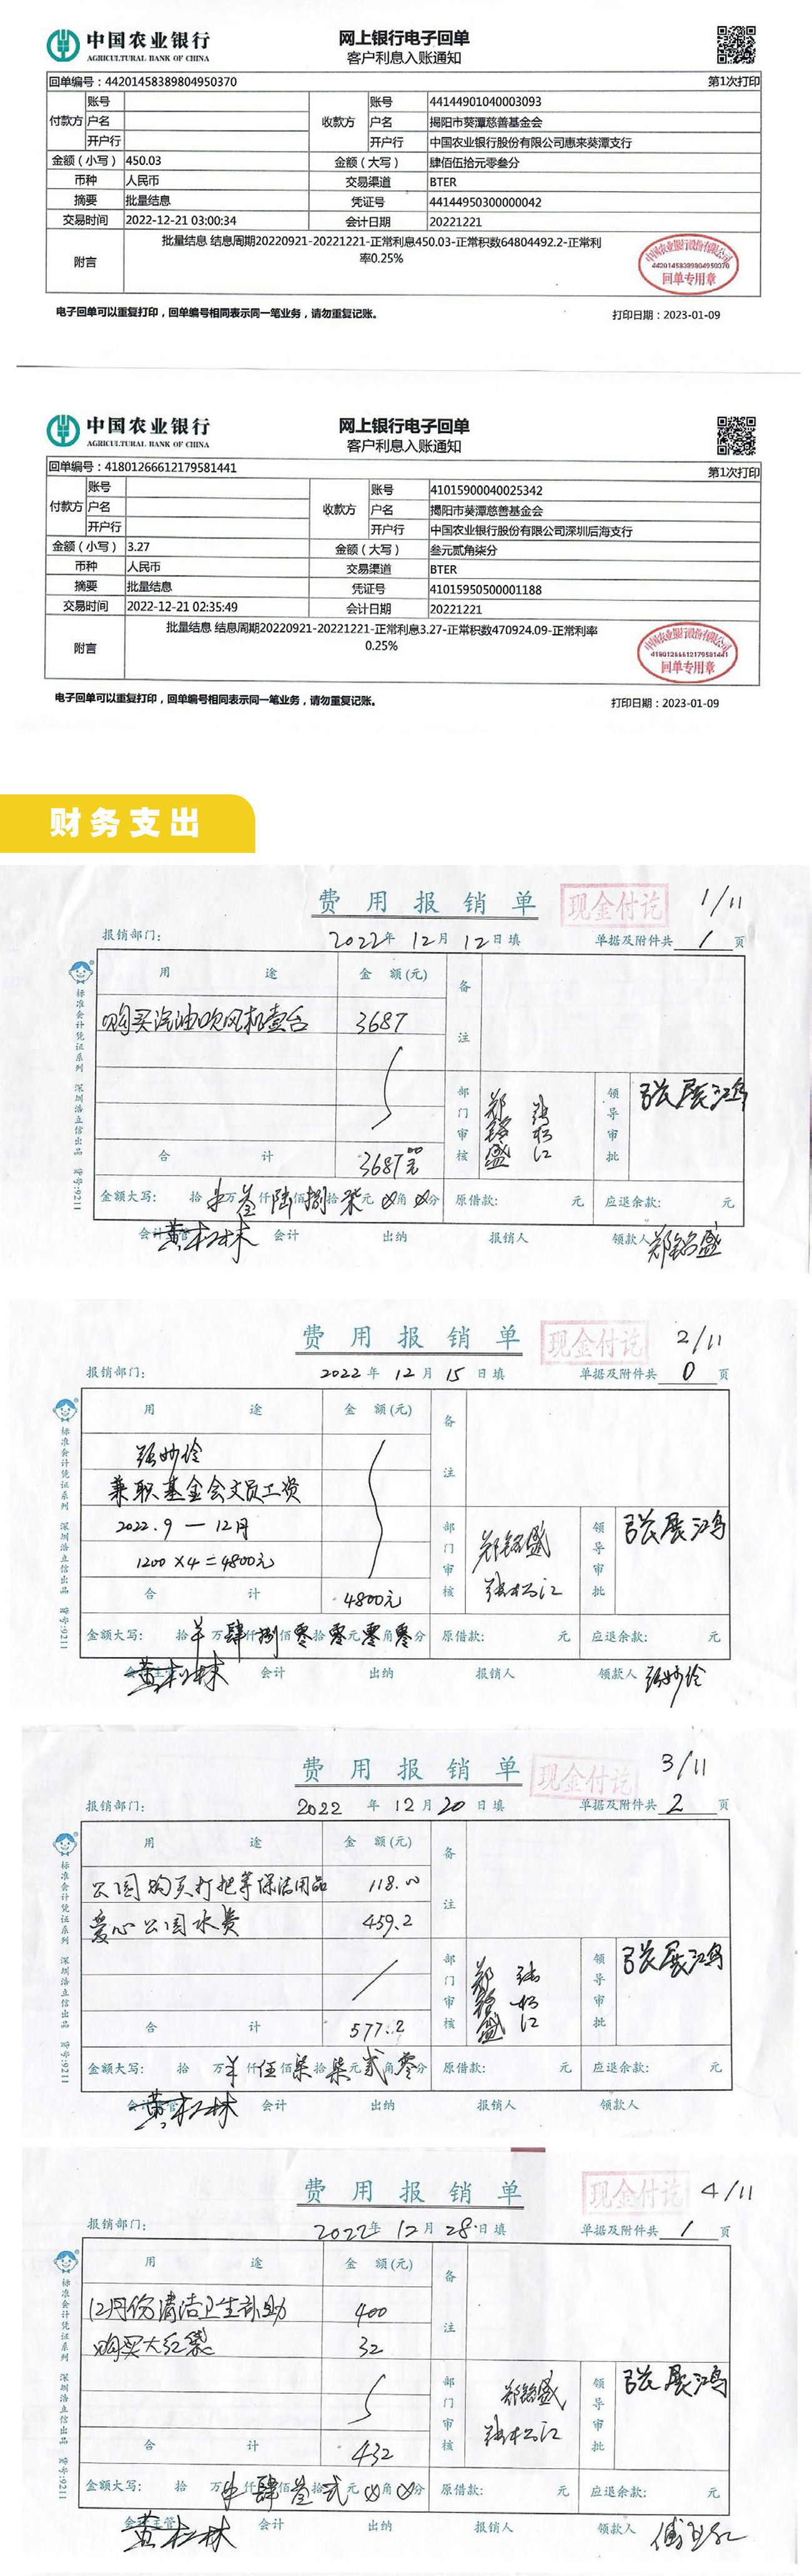 中国农业银行
AGRICULTURAL BANK OF CHINA
网上银行电子回单
客户利息入账通知
回单编号：44201458389804950370 第1次打印
付款方 账号 收款方 账号 44144901040003093
户名 户名 揭阳市葵潭慈善基金会
开户行 开户行 中国农业银行股份有限公司惠来葵潭支行
金额（小写） 450.03 金额（大写） 肆佰伍拾元零叁分
币种 人民币 交易渠道 BTER
摘要 批量结息 凭证号 44144950300000042
交易时间 2022-12-21 03:00:34 会计日期 20221221
附言 批量结息 结息周期20220921-20221221-正常利息450.03-正常积数64804492.2-正常利
率0.25%
中国农业银行股份有限公司
44201458389804950370
回单专用章
电子回单可以重复打印，回单编号相同表示同一笔业务，请勿重复记账。 打印日期：2023-01-09
中国农业银行
AGRICULTURAL BANK OF CHINA
网上银行电子回单
客户利息入账通知
回单编号：41801266612179581441 第1次打印
付款方 账号 收款方 账号 41015900040025342
户名 户名 揭阳市葵潭慈善基金会
开户行 开户行 中国农业银行股份有限公司深圳后海支行
金额（小写） 3.27 金额（大写） 叁元贰角柒分
币种 人民币 交易渠道 BTER
摘要 批量结息 凭证号 41015950500001188
交易时间 2022-12-21 02:35:49 会计日期 20221221
附言 批量结息 结息周期20220921-20221221-正常利息3.27-正常积数470924.09-正常利率
0.25%
中国农业银行股份有限公司
41801266612179581441
回单专用章
电子回单可以重复打印，回单编号相同表示同一笔业务，请勿重复记账。 打印日期：2023-01-09
财务支出
费用报销单 现金付讫 1/11
报销部门： 2022年 12月 12日填 单据及附件共 1 页
标准会计凭证系列 深圳浩立信出品 货号:9211
用途 金额(元) 备注
购买汽油吹风机壹台 3687
部门审核 郑铭盛 张松江 领导审批 张展鸿
合计 3687元
金额大写： 拾 万 叁仟 陆佰 捌拾 柒元 角 分 原借款： 元 应退余款： 元
会计主管 黄松林 会计 出纳 报销人 领款人 郑铭盛
费用报销单 现金付讫 2/11
报销部门： 2022年 12月 15日填 单据及附件共 0 页
标准会计凭证系列 深圳浩立信出品 货号:9211
用途 金额(元) 备注
张妙玲
兼职基金会文员工资
2022.9 — 12月
1200×4=4800元
部门审核 郑铭盛 张松江 领导审批 张展鸿
合计 4800元
金额大写： 拾 万 肆仟 捌佰 零拾 零元 零角 零分 原借款： 元 应退余款： 元
会计主管 黄松林 会计 出纳 报销人 领款人 张妙玲
费用报销单 现金付讫 3/11
报销部门： 2022年 12月 20日填 单据及附件共 2 页
标准会计凭证系列 深圳浩立信出品 货号:9211
用途 金额(元) 备注
公园购买扫把等保洁用品 118.00
爱心公园水费 459.2
部门审核 郑铭盛 张松江 领导审批 张展鸿
合计 577.2
金额大写： 拾 万 仟 伍佰 柒拾 柒元 贰角 零分 原借款： 元 应退余款： 元
会计主管 黄松林 会计 出纳 报销人 领款人
费用报销单 现金付讫 4/11
报销部门： 2022年 12月 28日填 单据及附件共 1 页
标准会计凭证系列 深圳浩立信出品 货号:9211
用途 金额(元) 备注
12月份清洁卫生补助 400
购买大红袋 32
部门审核 郑铭盛 张松江 领导审批 张展鸿
合计 432
金额大写： 拾 万 仟 肆佰 叁拾 贰元 角 分 原借款： 元 应退余款： 元
会计主管 黄松林 会计 出纳 报销人 领款人